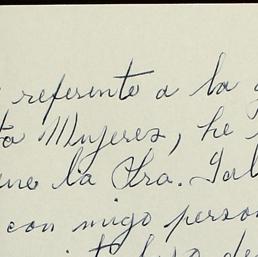 referente a la
Mujeres, he
la Sra. Gal
con migo person